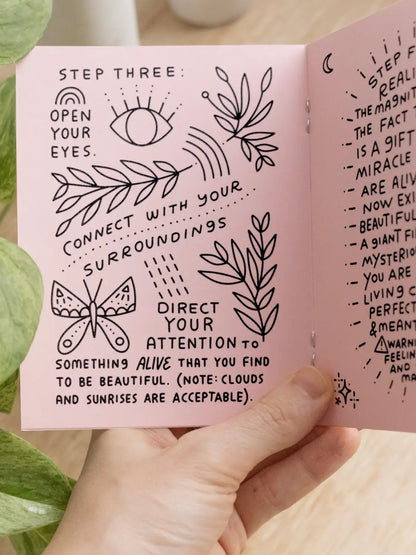 STEP THREE:
OPEN
YOUR
EYES.
CONNECT WITH YOUR
SURROUNDINGS
DIRECT
YOUR
ATTENTION TO
SOMETHING ALIVE THAT YOU FIND
TO BE BEAUTIFUL. (NOTE: CLOUDS
AND SUNRISES ARE ACCEPTABLE).
STEP
REALI
THE MAGNIT
THE FACT
IS A GIFT
MIRACLE
ARE ALIV
NOW EXI
BEAUTIFUL
A GIANT
MYSTERIOU
YOU ARE
LIVING
PERFECT
& MEANT
WARNI
FEELIN
AND
MA